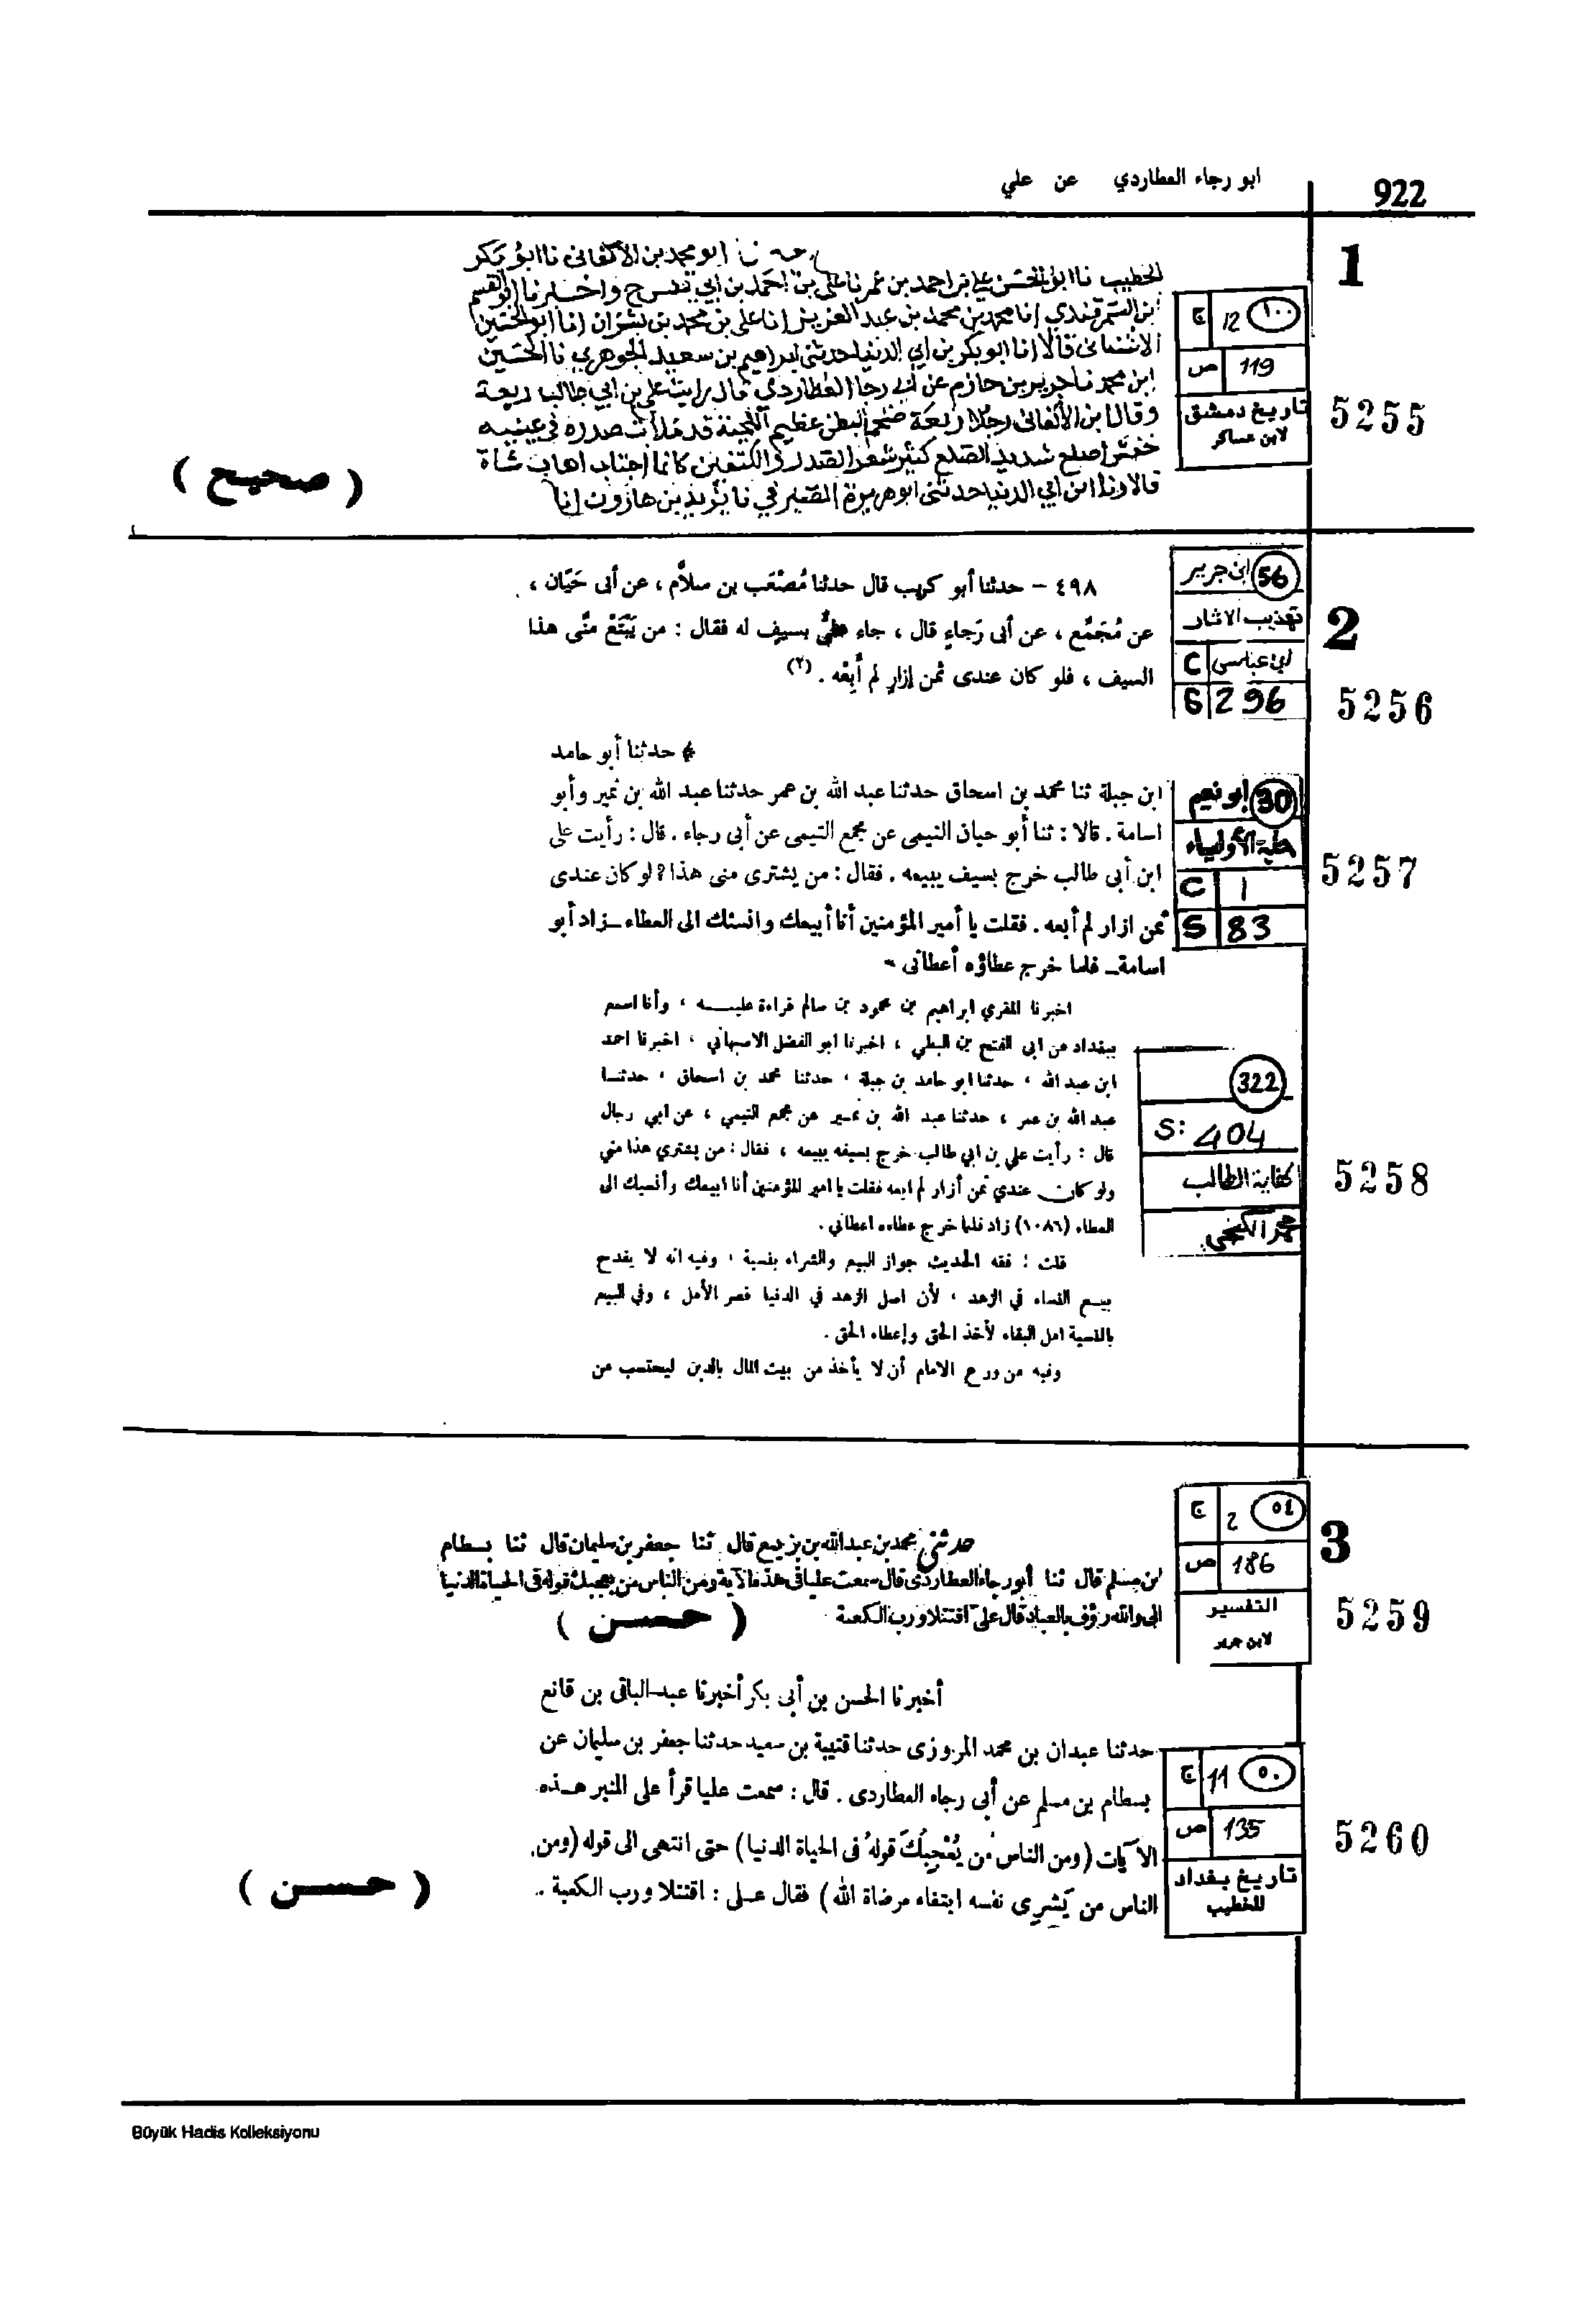 922
ابو رجاء العطاردي عن علي
1
نا ابو محمد بن الاكفاني نا ابو بكر
الخطيب نا ابو الحسن علي بن احمد بن عمر نا علي بن احمد بن ابي واخبرنا ابو القسم
ابن السمرقندي انا محمد بن محمد بن عبد العزيز انا علي بن محمد بن بشران انا ابو الحسين
الاشناني قالا انا ابو بكر بن ابي الدنيا حدثني ابراهيم بن سعيد الجوهري نا الحسين
ابن محمد نا جرير بن حازم عن ابي رجا العطاردي قال رايت علي بن ابي طالب ربعة
وقال ابن الاكفاني رجلا ربعة ضخم البطن عظيم اللحية قد ملات صدره في عينيه
خفش اصلع شديد الصلع كثير شعر الصدر والكتفين كانما اجتاب اهاب شاة
قالا ونا ابن ابي الدنيا حدثني ابو هريرة الصيرفي نا يزيد بن هارون انا
( صحيح )
١٠٠ 12 ج
119 ص
تاريخ دمشق
لابن عساكر
5255
2
56 ابن جرير
تهذيب الاثار
ابن عباس C
296 S
5256
٤٩٨ – حدثنا أبو كريب قال حدثنا مُصْعَب بن سلاَّم ، عن أبى حَيَّان ،
عن مُجَمِّع ، عن أبى رَجاءٍ قال ، جاء علىٌّ بسيفٍ له فقال : من يَبْتَعْ منِّى هذا
السيف ، فلو كان عندى ثمن إزارٍ لم أبِعْه . (٢)
30 ابو نعيم
حلية الأولياء
1 C
83 S
5257
* حدثنا أبو حامد
ابن جبلة ثنا محمد بن اسحاق حدثنا عبد الله بن عمر حدثنا عبد الله بن نمير وأبو
اسامة . قالا : ثنا أبو حيان التيمى عن مجمع التيمى عن أبى رجاء . قال : رأيت على
ابن أبى طالب خرج بسيف يبيعه . فقال : من يشترى منى هذا ? لو كان عندى
ثمن ازار لم أبعه . فقلت يا أمير المؤمنين أنا أبيعك وانسئك الى العطاء – زاد أبو
اسامة – فلما خرج عطاؤه أعطانى -
322
S: 404
كفاية الطالب
الكنجي
5258
اخبرنا المقري ابراهيم بن محمود بن سالم قراءة عليـــه ، وأنا اسمع
ببغداد عن ابي الفتح بن البطي ، اخبرنا ابو الفضل الاصبهاني ، اخبرنا احمد
ابن عبد الله ، حدثنا ابو حامد بن جبلة ، حدثنا محمد بن اسحاق ، حدثنـا
عبد الله بن عمر ، حدثنا عبد الله بن نمير عن مجمع التيمي ، عن ابي رجال
قال : رأيت علي بن ابي طالب خرج بسيفه يبيعه ، فقال : من يشتري هذا مني
ولو كان عندي ثمن أزار لم ابعه فقلت يا امير المؤمنين أنا ابيعك وأنسيك الى
العطاء (١٠٨٦) زاد فلما خرج عطاءه اعطاني .
قلت : فقه الحديث جواز البيع والشراء بنسية ، وفيه انه لا يقدح
بيـع النساء في الزهد ، لأن اصل الزهد في الدنيا قصر الأمل ، وفي البيع
بالنسية امل البقاء لأخذ الحق وإعطاء الحق .
وفيه من ورع الامام أن لا يأخذ من بيت المال بالدين ليحتسب من
3
٥٤ 2 ج
186 ص
التفسير
لابن جرير
5259
حدثني محمد بن عبد الله بن بزيع قال ثنا جعفر بن سليمان قال ثنا بسطام
ابن مسلم قال ثنا أبو رجاء العطاردى قال سمعت عليا فى هذه الآية ومن الناس من يعجبك قوله فى الحياة الدنيا
الى والله رؤف بالعباد قال على اقتتلا ورب الكعبة
( حسن )
أخبرنا الحسن بن أبى بكر أخبرنا عبد الباقى بن قانع
حدثنا عبدان بن محمد المروزى حدثنا قتيبة بن سعيد حدثنا جعفر بن سليمان عن
بسطام بن مسلم عن أبى رجاء العطاردى . قال : سمعت عليا قرأ على المنبر هـذه
الآيات (ومن الناس مَن يُعْجِبُكَ قولهُ فى الحياة الدنيا) حتى انتهى الى قوله (ومن
الناس من يَشْرِى نفسه ابتغاء مرضاة الله) فقال عـلى : اقتتلا ورب الكعبة ..
( حسن )
٥٠ 11 ج
135 ص
تاريخ بغداد
للخطيب
5260
Büyük Hadis Kolleksiyonu